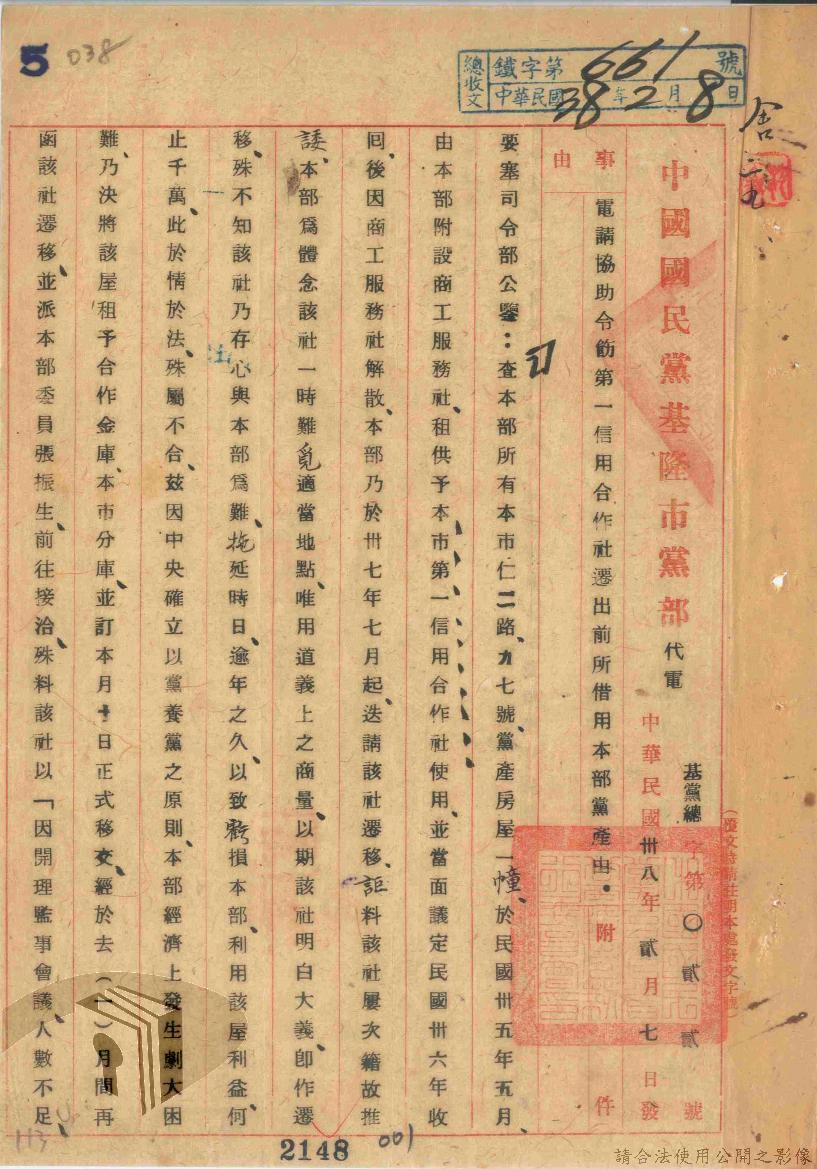 5
038
總收文
鐵字第661號
中華民國38年2月8日
中國國民黨基隆市黨部代電
基黨總字第〇貳貳號
中華民國卅八年貳月七日發
(覆文時請註明本處發文字號)
事由
電請協助令飭第一信用合作社遷出前所借用本部黨產由。
附件
要塞司令部公鑒：查本部所有本市仁二路、九七號、黨產房屋一幢、於民國卅五年五月、
由本部附設商工服務社、租供予本市第一信用合作社使用、並當面議定民國卅六年收
回、後因商工服務社解散、本部乃於卅七年七月起、迭請該社遷移、詎料該社屢次藉故推
諉、本部為體念該社一時難覓適當地點、唯用道義上之商量、以期該社明白大義、即作遷
移、殊不知該社乃存心與本部為難、拖延時日、逾年之久、以致虧損本部、利用該屋利益何
止千萬、此於情於法、殊屬不合、茲因中央確立以黨養黨之原則、本部經濟上發生劇大困
難、乃決將該屋租予合作金庫、本市分庫、並訂本月十日正式移交、經於去(一)月間再
函該社遷移、並派本部委員張振生、前往接洽、殊料該社以「因開理監事會議、人數不足、
113
2148
001
請合法使用公開之影像